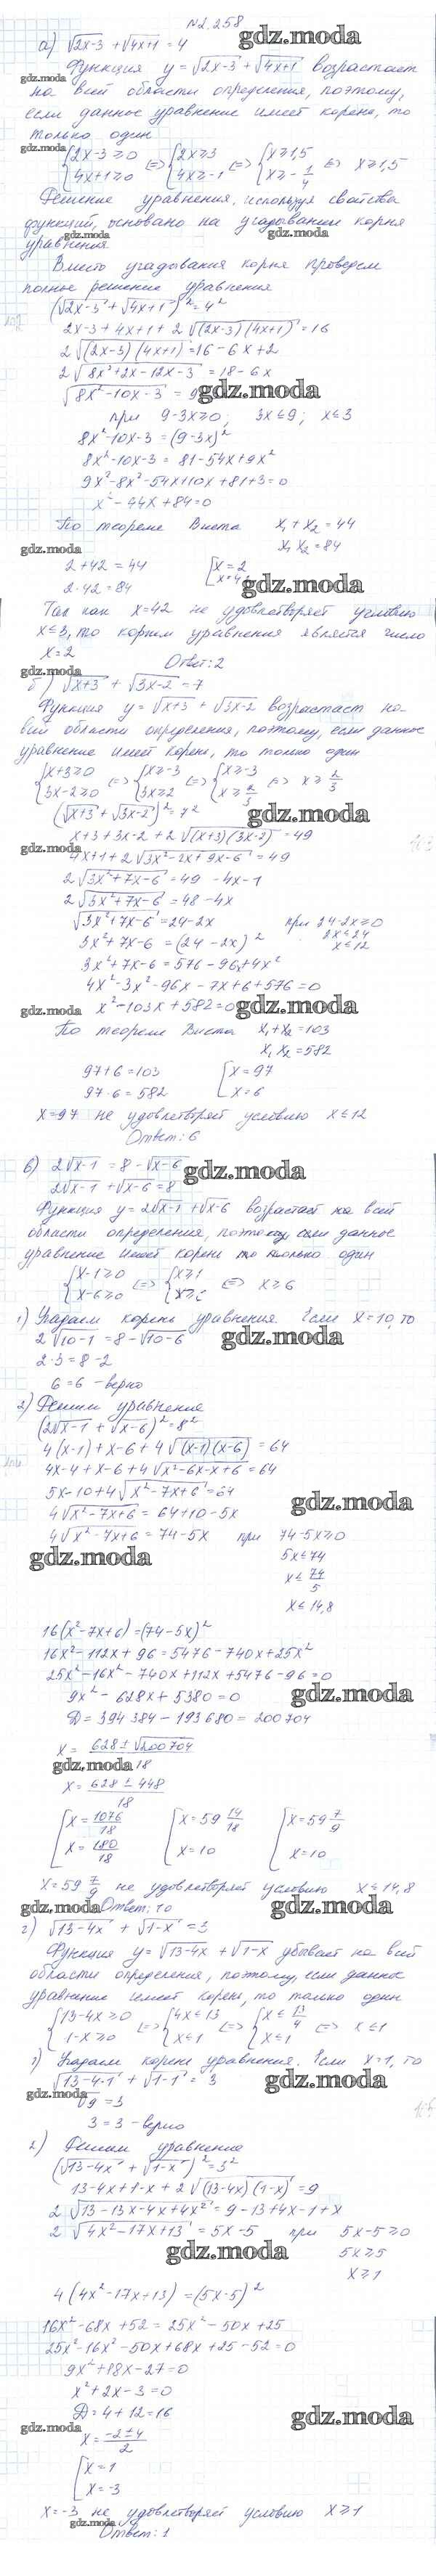 №2.258
gdz.moda
а) √(2x-3) + √(4x+1) = 4
Функция y = √(2x-3) + √(4x+1) возрастает
gdz.moda
на всей области определения, поэтому,
если данное уравнение имеет корень, то
только один
gdz.moda
{2x-3≥0 4x+1≥0 <=> {2x≥3 4x≥-1 <=> {x≥1,5 x≥-1/4 <=> x≥1,5
Решение уравнения, используя свойства
функций, основано на угадывании корня
gdz.moda gdz.moda
уравнения
Вместо угадывания корня проведем
полное решение уравнения
(√(2x-3) + √(4x+1))² = 4²
2x-3+4x+1+2√((2x-3)(4x+1)) = 16
2√((2x-3)(4x+1)) = 16-6x+2
2√(8x²+2x-12x-3) = 18-6x
√(8x²-10x-3) = 9
gdz.moda
при 9-3x≥0; 3x≤9; x≤3
8x²-10x-3 = (9-3x)²
8x²-10x-3 = 81-54x+9x²
9x²-8x²-54x+10x+81+3=0
x²-44x+84=0
По теореме Виета x₁+x₂=44
gdz.moda x₁x₂=84
2+42=44 [x=2
gdz.moda
2·42=84
Так как x=42 не удовлетворяет условию
x≤3, то корнем уравнения является число
x=2
Ответ: 2
gdz.moda
б) √(x+3) + √(3x-2) = 7
Функция y=√(x+3) + √(3x-2) возрастает на
всей области определения, поэтому, если данное
уравнение имеет корень, то только один
{x+3≥0 3x-2≥0 <=> {x≥-3 3x≥2 <=> {x≥-3 x≥2/3 <=> x≥2/3
(√(x+3) + √(3x-2))² = 7²
gdz.moda
x+3+3x-2+2√((x+3)(3x-2)) = 49
gdz.moda
4x+1+2√(3x²-2x+9x-6) = 49
2√(3x²+7x-6) = 49-4x-1
2√(3x²+7x-6) = 48-4x
√(3x²+7x-6) = 24-2x при 24-2x≥0
2x≤24
3x²+7x-6 = (24-2x)² x≤12
3x²+7x-6 = 576-96x+4x²
4x²-3x²-96x-7x+6+576=0
gdz.moda x²-103x+582=0 gdz.moda
По теореме Виета x₁+x₂=103
x₁x₂=582
97+6=103 [x=97
97·6=582 x=6
x=97 не удовлетворяет условию x≤12
Ответ: 6
в) 2√(x-1) = 8-√(x-6) gdz.moda
2√(x-1) + √(x-6) = 8
Функция y=2√(x-1) + √(x-6) возрастает на всей
области определения, поэтому, если данное
уравнение имеет корень то только один
{x-1≥0 x-6≥0 <=> {x≥1 x≥6 <=> x≥6
1) Угадаем корень уравнения. Если x=10, то
2√(10-1) = 8-√(10-6) gdz.moda
2·3=8-2
6=6 - верно
2) Решим уравнение
(2√(x-1) + √(x-6))² = 8²
4(x-1)+x-6+4√((x-1)(x-6)) = 64
4x-4+x-6+4√(x²-6x-x+6) = 64
5x-10+4√(x²-7x+6) = 64
gdz.moda
4√(x²-7x+6) = 64+10-5x
4√(x²-7x+6) = 74-5x при 74-5x≥0
gdz.moda 5x≤74
x≤74/5
x≤14,8
16(x²-7x+6)=(74-5x)²
16x²-112x+96=5476-740x+25x²
25x²-16x²-740x+112x+5476-96=0
9x²-628x+5380=0 gdz.moda
D=394384-193680=200704
x=(628±√200704)/18
gdz.moda
x=(628±448)/18
[x=1076/18 x=180/18 [x=59 14/18 x=10 [x=59 7/9 x=10
x=59 7/9 не удовлетворяет условию x≤14,8
gdz.moda Ответ: 10 gdz.moda
г) √(13-4x) + √(1-x) = 3
Функция y=√(13-4x) + √(1-x) убывает на всей
области определения, поэтому, если данное
уравнение имеет корень, то только один
{13-4x≥0 1-x≥0 <=> {4x≤13 x≤1 <=> {x≤13/4 x≤1 <=> x≤1
1) Угадаем корень уравнения. Если x=1, то
√(13-4·1) + √(1-1) = 3 gdz.moda
gdz.moda √9=3
3=3 - верно
2) Решим уравнение
(√(13-4x) + √(1-x))² = 3²
13-4x+1-x+2√((13-4x)(1-x)) = 9
2√(13-13x-4x+4x²) = 9-13+4x-1+x
2√(4x²-17x+13) = 5x-5 при 5x-5≥0
gdz.moda 5x≥5
x≥1
4(4x²-17x+13) = (5x-5)²
16x²-68x+52=25x²-50x+25
25x²-16x²-50x+68x+25-52=0
9x²+18x-27=0
x²+2x-3=0
D=4+12=16 gdz.moda
gdz.moda
x=(-2±4)/2
[x=1
x=-3
x=-3 не удовлетворяет условию x≥1
gdz.moda
Ответ: 1